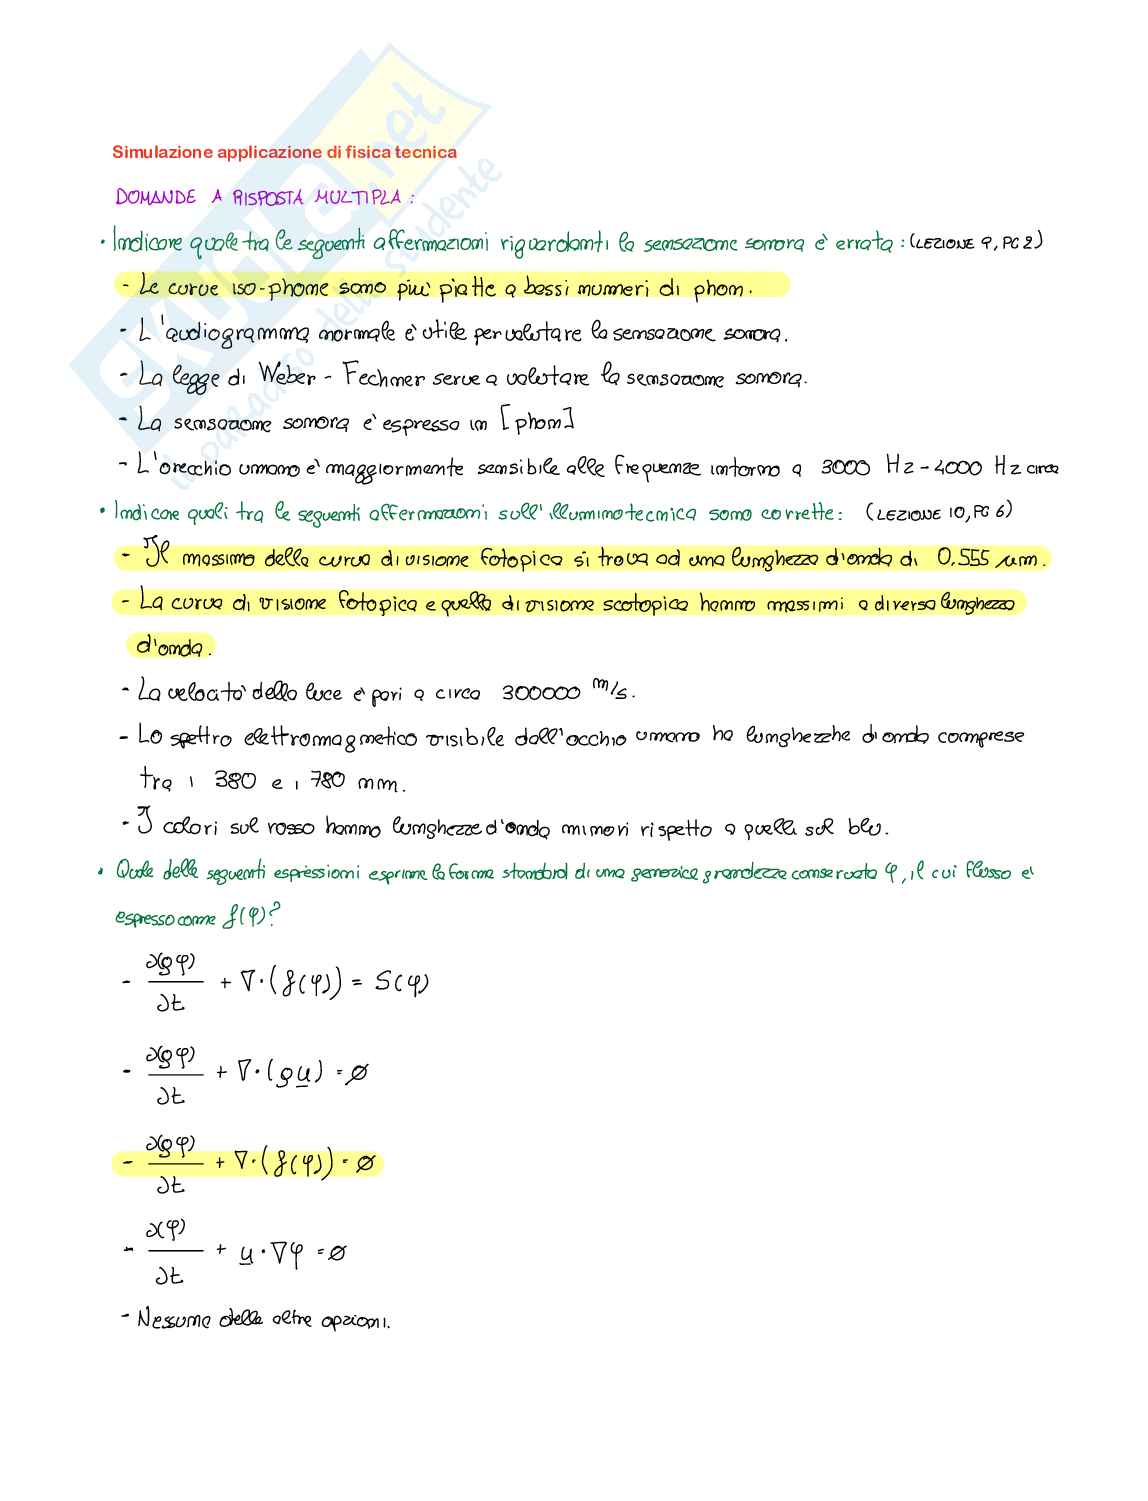 Simulazione applicazione di fisica tecnica
DOMANDE A RISPOSTA MULTIPLA :
• Indicare quale tra le seguenti affermazioni riguardanti la sensazione sonora è errata : (LEZIONE 9, PG 2)
- Le curve iso-phone sono più piatte a bassi numeri di phon.
- L'audiogramma normale è utile per valutare la sensazione sonora.
- La legge di Weber - Fechner serve a valutare la sensazione sonora.
- La sensazione sonora è espressa in [phon]
- L'orecchio umano è maggiormente sensibile alle frequenze intorno a 3000 Hz - 4000 Hz circa
• Indicare quali tra le seguenti affermazioni sull'illuminotecnica sono corrette : (LEZIONE 10, PG 6)
- Il massimo della curva di visione fotopica si trova ad una lunghezza d'onda di 0.555 μm.
- La curva di visione fotopica e quella di visione scotopica hanno massimi a diversa lunghezza
d'onda.
- La velocità della luce è pari a circa 300000 m/s.
- Lo spettro elettromagnetico visibile dall'occhio umano ha lunghezze di onda comprese
tra i 380 e i 780 mm.
- I colori sul rosso hanno lunghezze d'onda minori rispetto a quelli sul blu.
• Quale delle seguenti espressioni esprime la forma standard di una generica grandezza conservata φ, il cui flusso è
espresso come f(φ)?
- ∂(ρφ)/∂t + ∇·(f(φ)) = S(φ)
- ∂(ρφ)/∂t + ∇·(ρu) = ∅
- ∂(ρφ)/∂t + ∇·(f(φ)) = ∅
- ∂(φ)/∂t + u·∇φ = ∅
- Nessuna delle altre opzioni.
SKUOLA.net
il paradiso dello studente